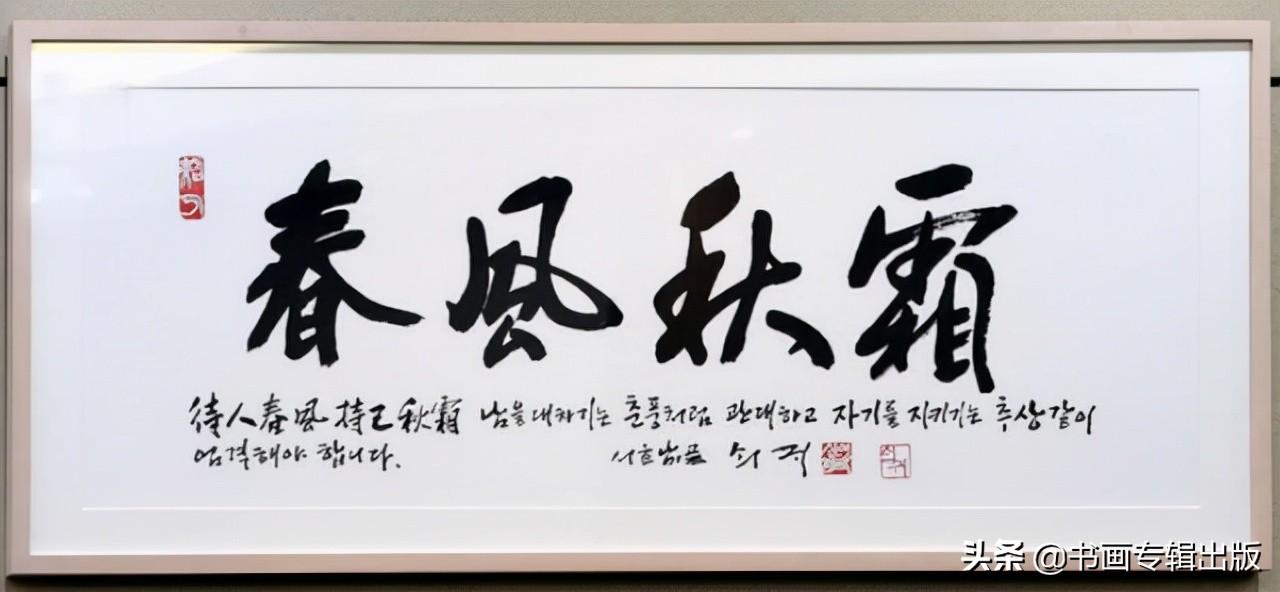 春風秋霜
待人春風 持己秋霜 남을 대하기는 춘풍처럼 관대하고 자기를 지키기는 추상같이
엄격해야 합니다.
头条 @书画专辑出版